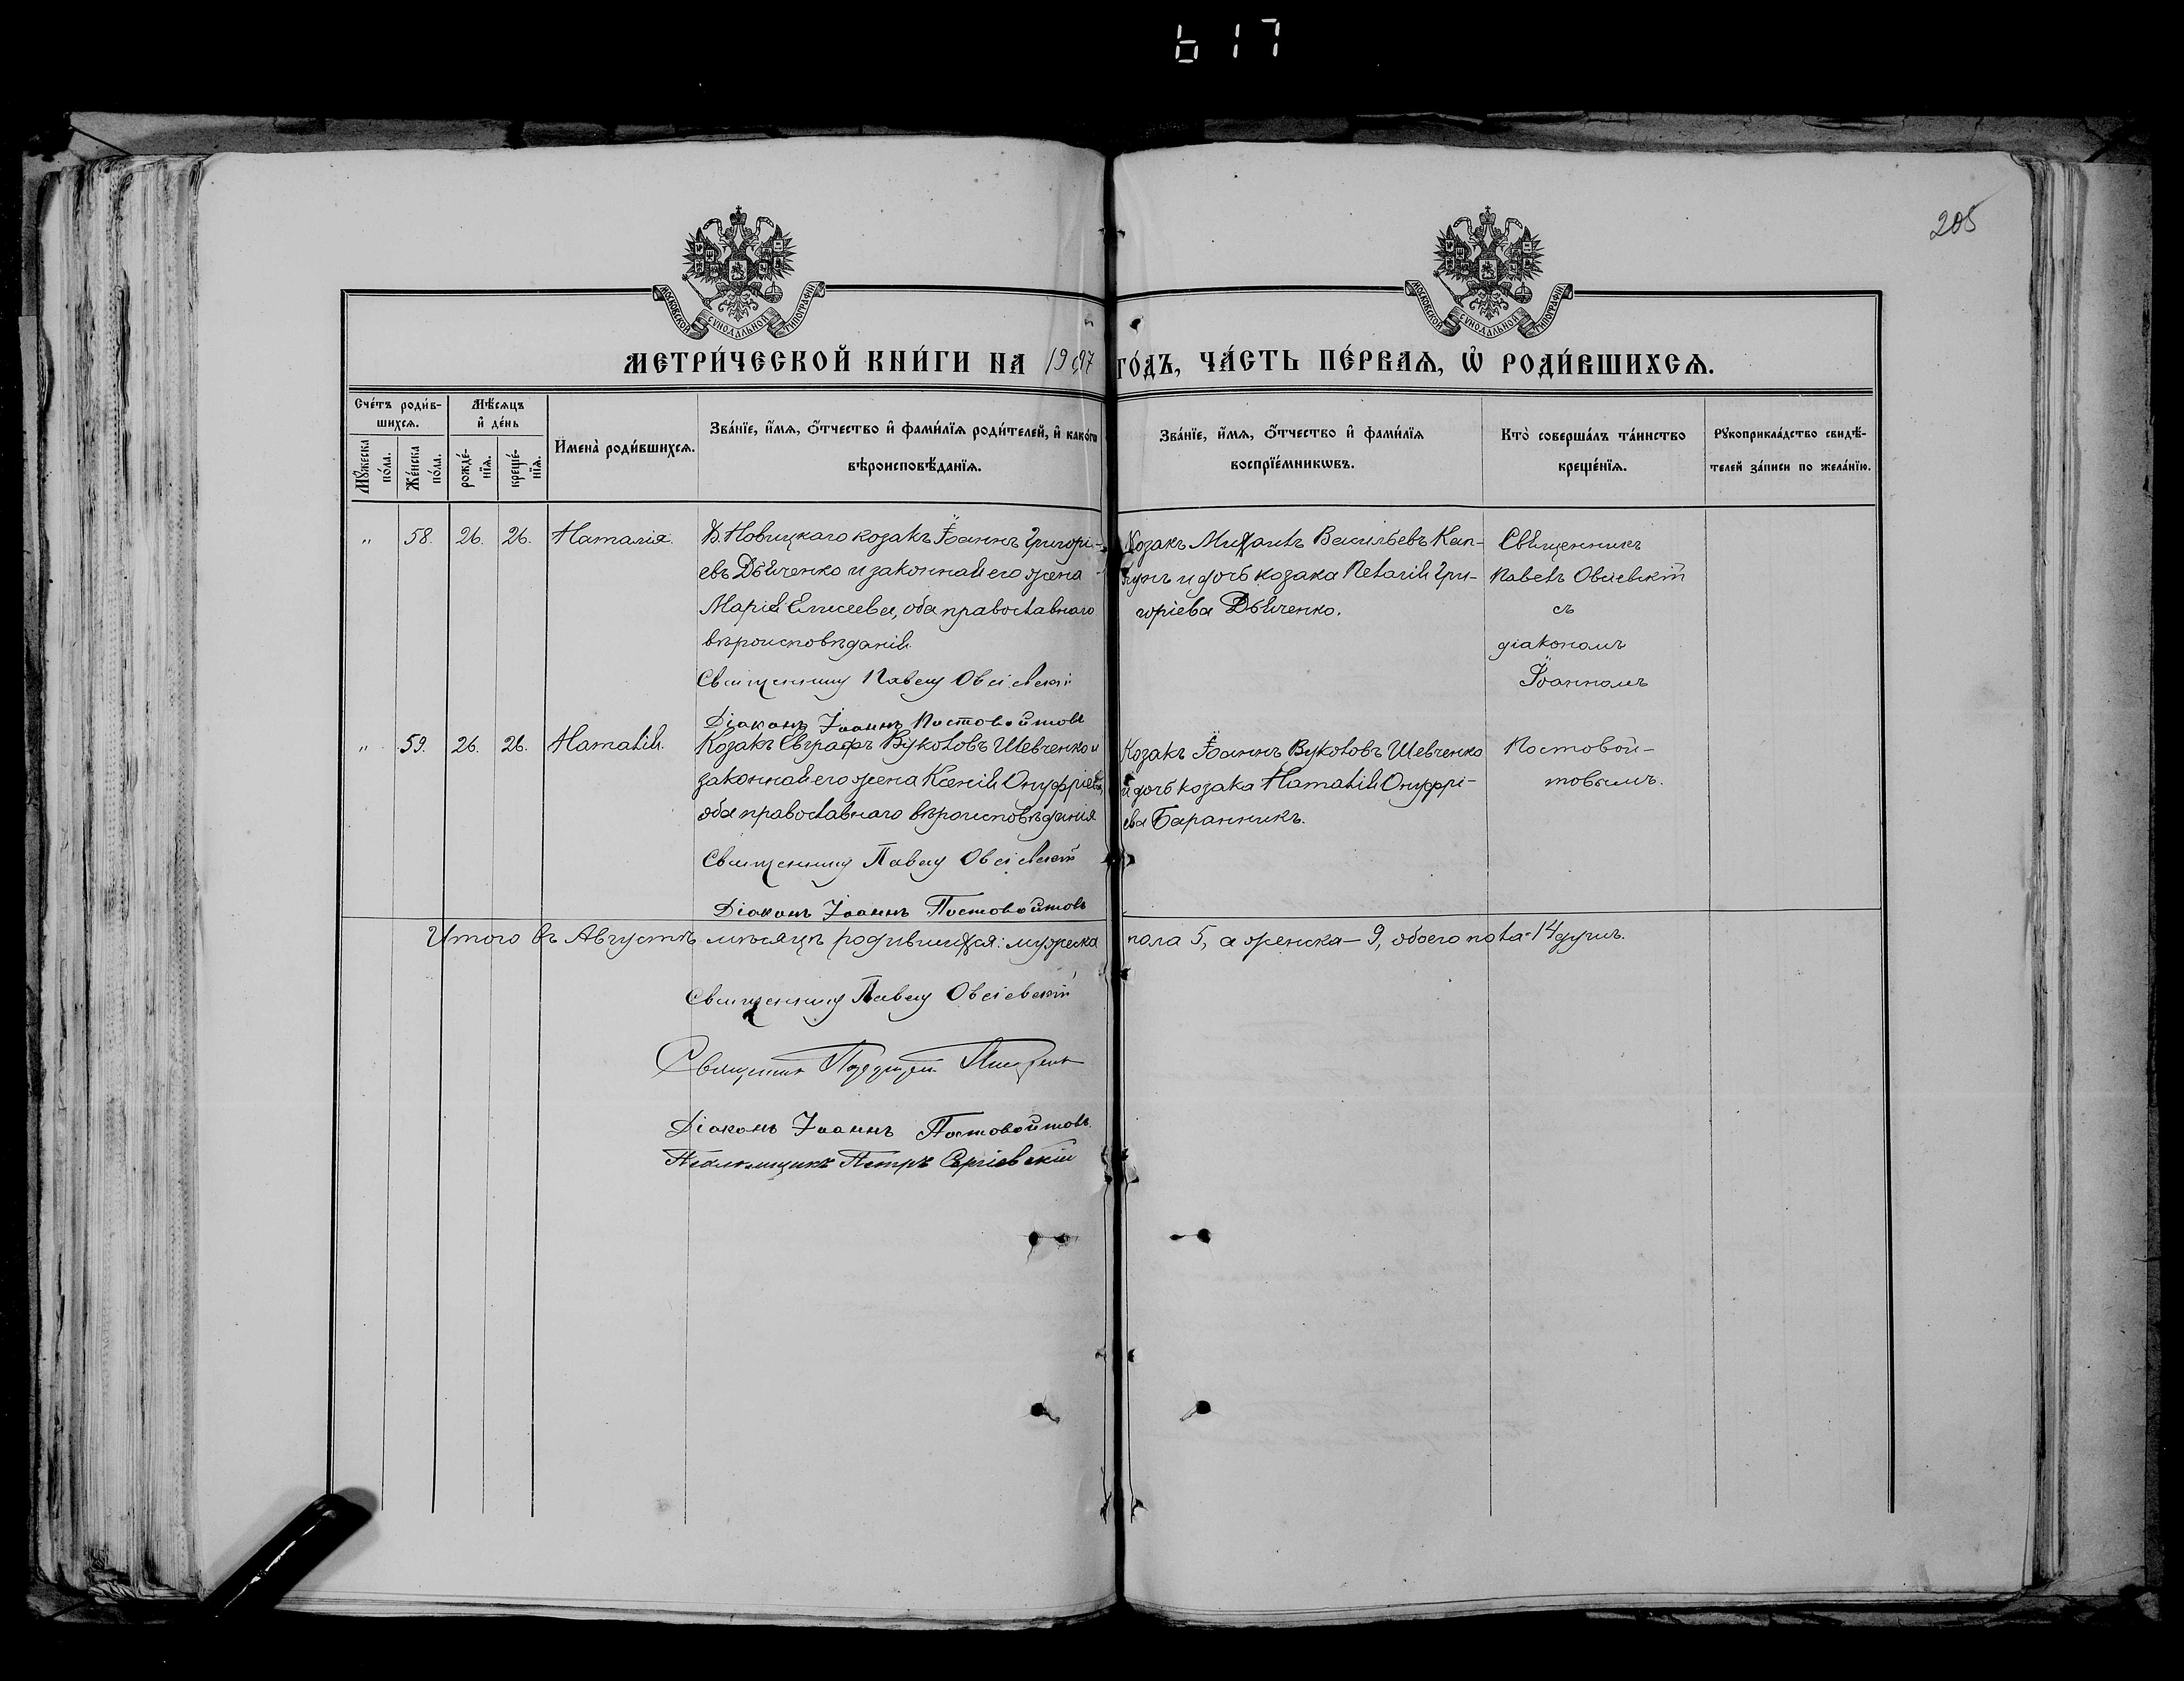 617
205
МОСКОВСКОЙ СѴНОДАЛЬНОЙ ТИПОГРАФІИ
МОСКОВСКОЙ СѴНОДАЛЬНОЙ ТИПОГРАФІИ
МЕТРИ́ЧЕСКОЙ КНИ́ГИ НА 1907 ГО́ДЪ, ЧА́СТЬ ПЕ́РВАѦ, Ѡ҆ РОДИ́ВШИХСѦ.
Сче́тъ роди́в-
шихсѧ.
Мꙋ́жеска по́ла.
Же́нска по́ла.
Мѣ́сѧцъ
и҆ де́нь
рожде́-
нїѧ.
креще́-
нїѧ.
И҆мена̀ роди́вшихсѧ.
Зва́нїе, и҆́мѧ, ѻ҆́тчество и҆ фами́лїѧ роди́телей, и҆ како́гѡ
вѣроисповѣ́данїѧ.
Зва́нїе, и҆́мѧ, ѻ҆́тчество и҆ фами́лїѧ
воспрїе́мникѡвъ.
Кто̀ соверша́лъ та́инство
креще́нїѧ.
Рꙋкоприкла́дство свидѣ́-
телей за́писи по жела́нїю.
„ 58. 26. 26. Наталія.
Д. Новицкаго козакъ Іоаннъ Григорі-
евъ Дьяченко и законная его жена
Марія Елисеева, оба православнаго
вѣроисповѣданія.
Священникъ Павелъ Овсіевскій
Діаконъ Іоаннъ Постовойтовъ
Козакъ Михаилъ Васильевъ Кап-
и дочь козака Пелагія Гри-
горіева Дьяченко.
Священникъ
Павелъ Овсіевскій
съ
діакономъ
Іоанномъ
Постовой-
товымъ.
„ 59. 26. 26. Наталія.
Козакъ Евграфъ Вуколовъ Шевченко и
законная его жена Ксенія Онуфріева,
оба православнаго вѣроисповѣданія
Священникъ Павелъ Овсіевскій
Діаконъ Іоаннъ Постовойтовъ
Козакъ Іоаннъ Вуколовъ Шевченко
и дочь козака Наталія Онуфрі-
ева Баранникъ.
Итого въ Августѣ мѣсяцѣ родившихся: мужеска пола 5, а женска – 9, обоего пола – 14 душъ.
Священникъ Павелъ Овсіевскій
Священникъ
Діаконъ Іоаннъ Постовойтовъ.
Псаломщикъ Петръ Сергіевскій